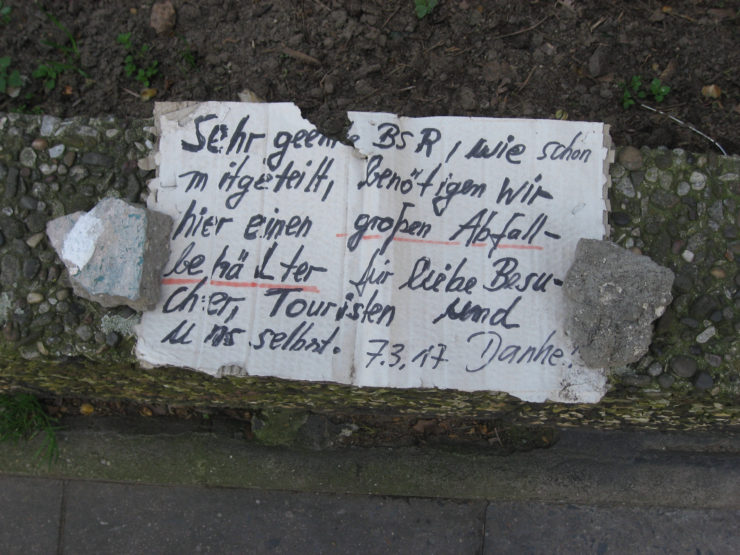 Sehr geehrte BSR, wie schon
mitgeteilt, benötigen wir
hier einen großen Abfall-
behälter für liebe Besu-
cher, Touristen und
uns selbst. 7.3.17 Danke!